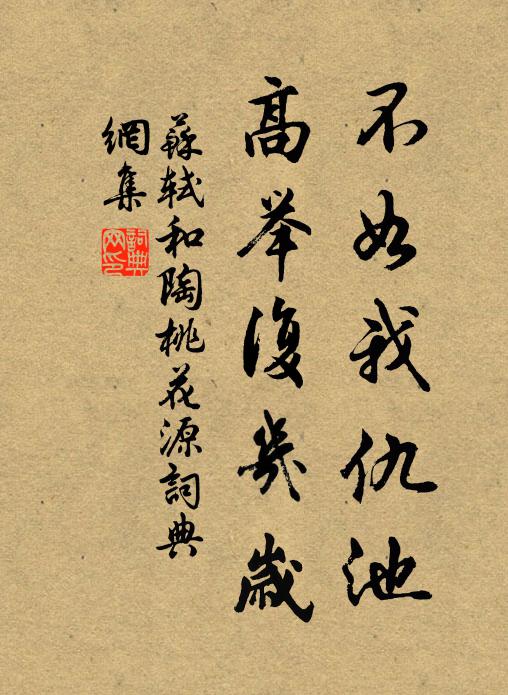 不如我仇池
高举復幾歲
蘇軾和陶桃花源詞典
網集
詞典
网印